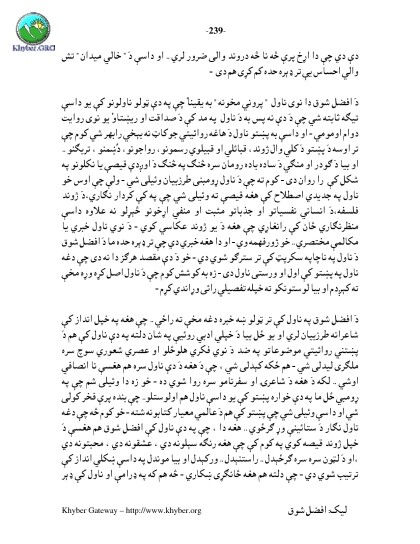 Khyber.ORG
-239-
دي دي چې دا اړخ پرې څه نا څه دروند والی ضرور لري۔ او داسې دَ "خالي ميدان" تش
والي احساس یې تر ډېره حده کم کړی هم دی -
دَ افضل شوق دا نوی ناول "پرونې مخونه" به یقیناً چې په دې ټولو ناولونو کې یو داسې
تیګه ثابته شي چې دَ دې نه پس به دَ ناول په مد کې دَ صداقت او ریښتاو یو نوی روایت
دوام اومومي - او داسې به پښتو ناول دَ هاغه روائيتي جوکاټ نه بیخي رابهر شي کوم چې
تر اوسه دَ پښتو دَ کلي وال ژوند، قبائلي او قبیلوي رسمونو، رواجونو، دُښمنو، تربګنو ..
او بیا دَ ګودر او منګي دَ ساده باده رومان سره څنګ په څنګ دَ اوږدې قیصې یا نکلونو په
شکل کې را روان دی - کوم ته چې دَ ناول ړومبنی طرز بیان وئیلی شي - ولې چې اوس خو
ناول په جدیدې اصطلاح کې هغه قیصې ته وئیلی شي چې په کې کردار نګاري، دَ ژوند
فلسفه، دَ انساني نفسیاتو او جذباتو مثبت او منفي اړخونو څېړلو نه علاوه داسې
منظرنګاري ځان کې رانغاړي چې هغه دَ یو ژوند عکاسي کوي - دَ نوي ناول خبرې یا
مکالمې مختصرې.. خو زور فهمه وي - او دا هغه خبرې دي چې تر ډېره حده ما دَ افضل شوق
دَ ناول په ناچاپه سکرپټ کې تر سترګو شوې دي - خو دَ دې مقصد هرګز دا نه دی چې دغه
ناول په پښتو کې اول او ورستی ناول دی - زه به کوشش کوم چې دَ ناول اصل کړه وړه مخې
ته کېږدم او بیا لوستونکو ته خپله تفصیلي رائی وړاندې کړم -
دَ افضل شوق په ناول کې تر ټولو ښه خبره دغه مخې ته راځي .. چې هغه په خپل انداز کې
شاعرانه طرز بیان لري او یو ځل بیا دَ خپلې ادبي روئیې په شان دلته په دې ناول کې هم دَ
پښتني روائیتي موضوعاتو په ضد دَ نوې فکرې هلو ځلو او عصري شعورې سوچ سره
ملګری لیدلی شي - هم څکه کېدلی شي، چې دَ هغه دَ دې ناول سره هم هغسې نا انصافي
اوشي .. لکه دَ هغه دَ شاعرۍ او سفرنامو سره روا شوې ده - خو زه دا وئیلی شم چې په
ړومبي ځل ما په دې خواره پښتو کې یو داسې ناول هم اولوستلو .. چې بنده پرې فخر کولی
شي او داسې وئیلی شي چې پښتو کې هم دَ عالمي معیار کتابونه شته - خو کوم څه چې دغه
ناول نګار دَ ستائینې وړ ګرځوي .. هغه دا، چې په دې ناول کې افضل شوق هم هغسې دَ
خپل ژوند قیصه کوي په کوم کې چې هغه رنګه سېلونه دي، عشقونه دي، محبتونه دي
، او دَ لټون سره سره ګرځېدل .. راستنېدل .. ورکېدل او بیا موندل په داسې ښکلي انداز کې
ترتیب شوي دي - چې دلته هم هغه ځانګړی ښکاري - څه هم که په ډرامه او ناول کې ډېر
Khyber Gateway – http://www.khyber.org
لیک: افضل شوق